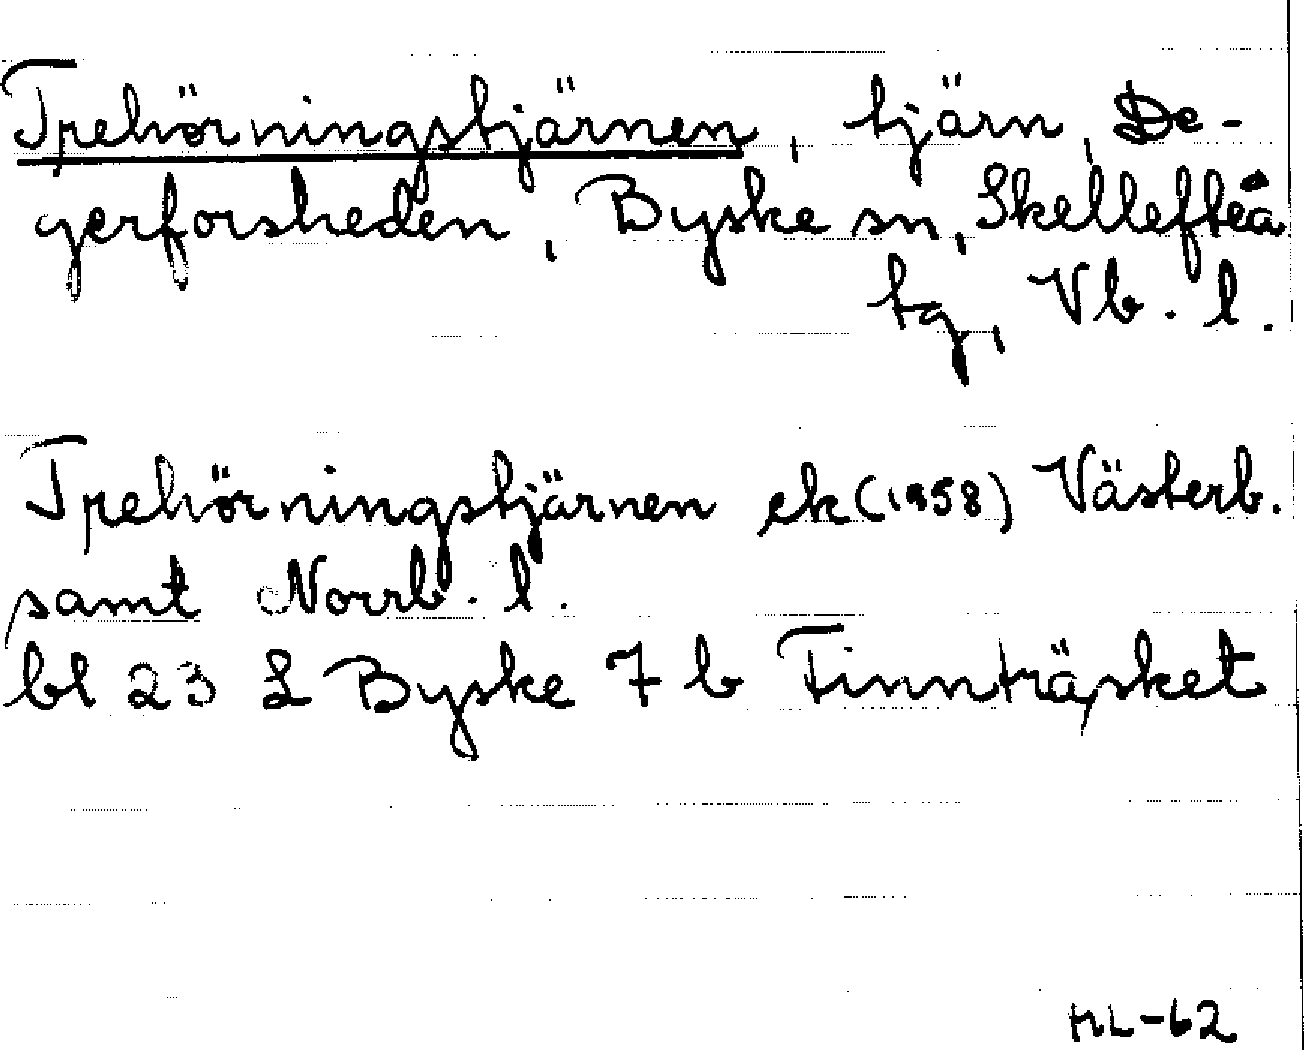 Trehörningstjärnen, tjärn, De-
gerforsheden, Byske sn, Skellefteå
tg, Vb. l.
Trehörningstjärnen ek (1958) Västerb.
samt Norrb. l.
bl 23 L Byske 7 b Finnträsket
ML-62